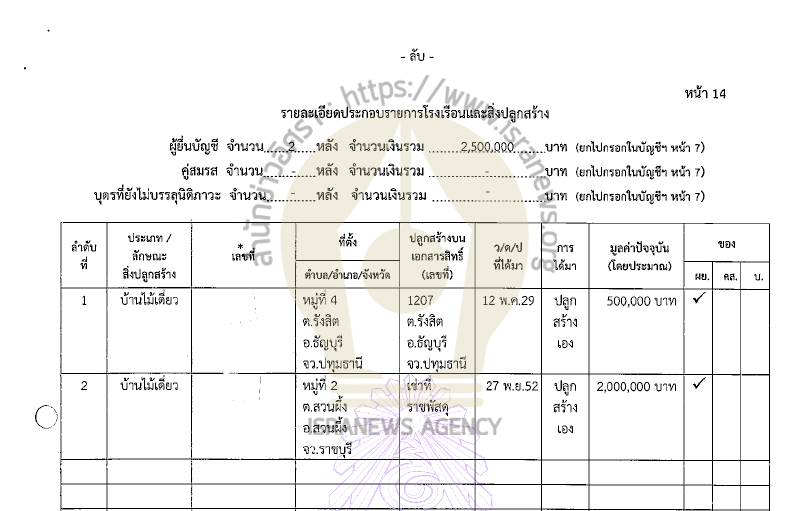 - ลับ -
หน้า 14
รายละเอียดประกอบรายการโรงเรือนและสิ่งปลูกสร้าง
ผู้ยื่นบัญชี จำนวน......2......หลัง จำนวนเงินรวม ........2,500,000........บาท (ยกไปกรอกในบัญชีฯ หน้า 7)
คู่สมรส จำนวน......-......หลัง จำนวนเงินรวม ........-........บาท (ยกไปกรอกในบัญชีฯ หน้า 7)
บุตรที่ยังไม่บรรลุนิติภาวะ จำนวน......-......หลัง จำนวนเงินรวม ........-........บาท (ยกไปกรอกในบัญชีฯ หน้า 7)
ลำดับที่ ประเภท / ลักษณะสิ่งปลูกสร้าง * เลขที่ ที่ตั้ง ตำบล/อำเภอ/จังหวัด ปลูกสร้างบนเอกสารสิทธิ์ (เลขที่) ว/ด/ป ที่ได้มา การได้มา มูลค่าปัจจุบัน (โดยประมาณ) ของ ผย. คส. บ.
1 บ้านไม้เดี่ยว หมู่ที่ 4 1207 12 พ.ค.29 ปลูก 500,000 บาท ✓
ต.รังสิต ต.รังสิต สร้าง
อ.ธัญบุรี อ.ธัญบุรี เอง
จว.ปทุมธานี จว.ปทุมธานี
2 บ้านไม้เดี่ยว หมู่ที่ 2 เช่าที่ 27 พ.ย.52 ปลูก 2,000,000 บาท ✓
ต.สวนผึ้ง ราชพัสดุ สร้าง
อ.สวนผึ้ง เอง
จว.ราชบุรี
สำนักข่าวอิศรา : https://www.isranews.org
ISRANEWS AGENCY